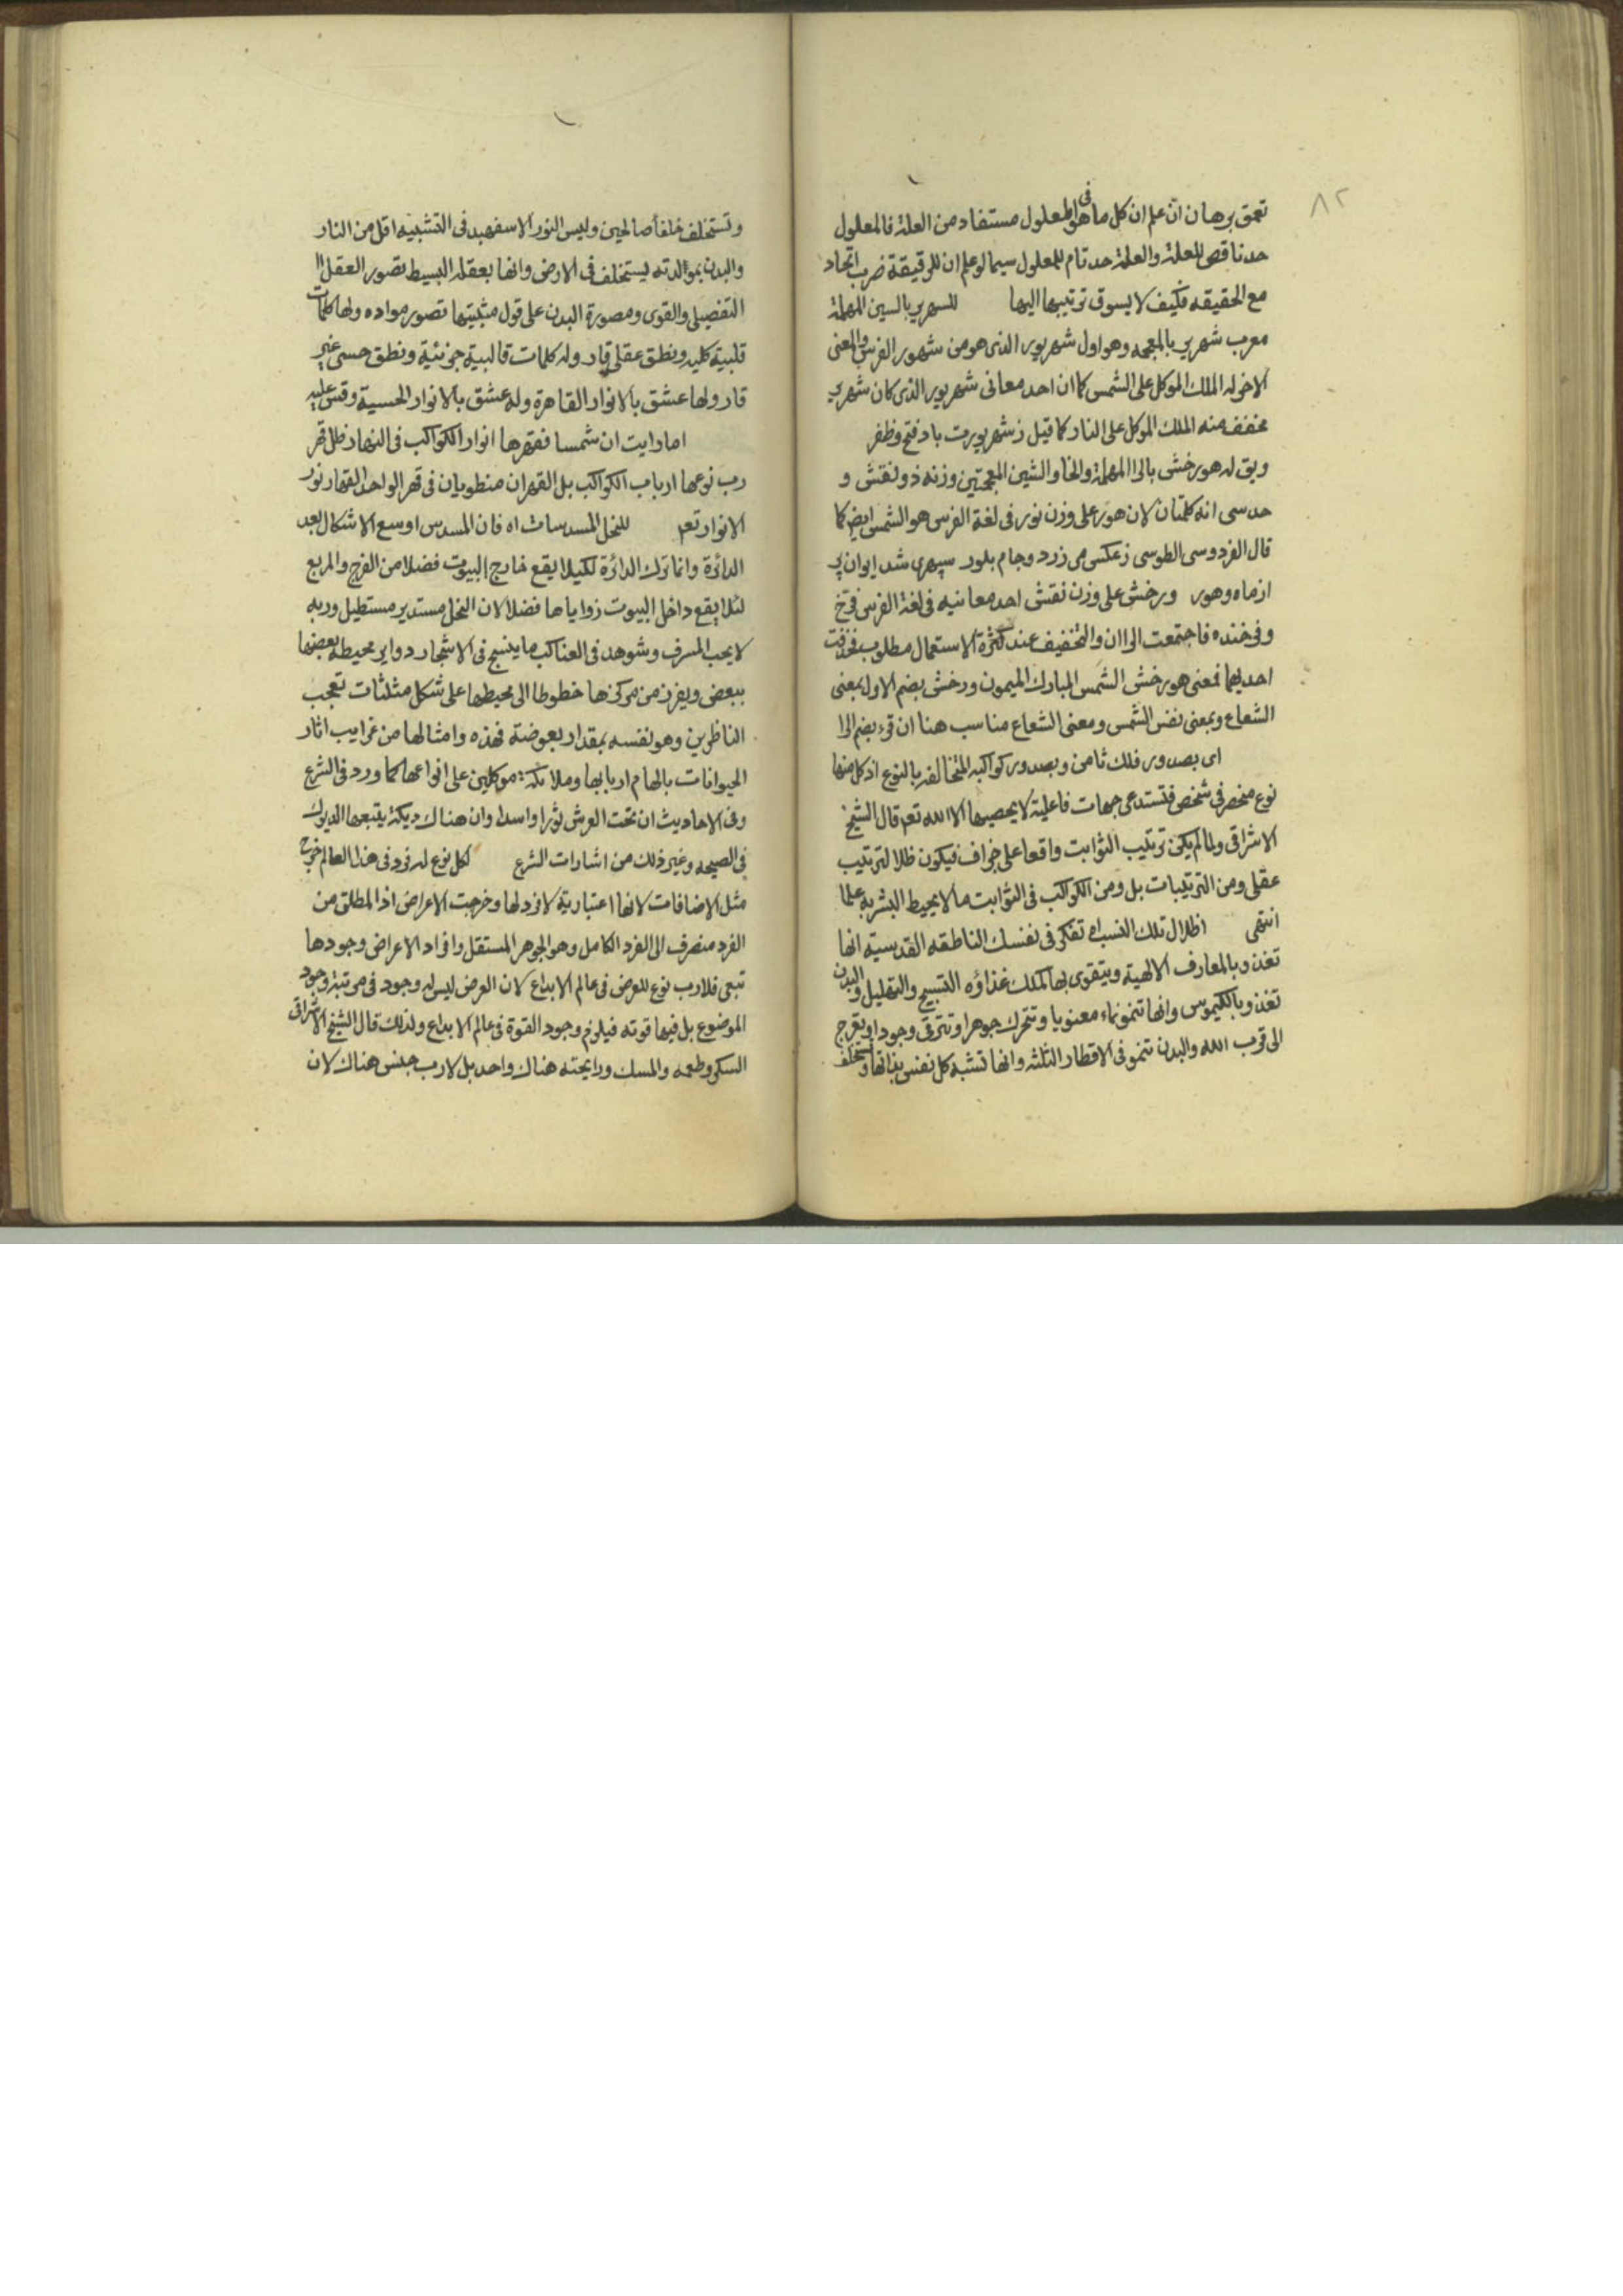 ٨٢
تعمق برهان انّ علم ان كل ما هو فى المعلول مستفاد من العلة فالمعلول
حد ناقص للعلة والعلة حد تام للمعلول سيما لو علم ان للرقيقة ضرب اتحاد
مع الحقيقه فكيف لا يسوق ترتيبها اليها للسهرير بالسين المهملة
معرب شهرير بالمعجمه وهو اول شهريور الذى هو من شهور الفرس والمعنى
الاخر له الملك الموكل على الشمس كما ان احد معانى شهريور الذى كان شهرير
مخفف منه الملك الموكل على النار كما قيل ز شهريورت باد فتح و ظفر
ويق له هورخش بالرا المهملة والخا والشين المعجمتين وزنه ذو نقش و
حدسى انه كلمتان لان هور على وزن نور فى لغة الفرس هو الشمس ايض كما
قال الفردوسى الطوسى ز عكس مى زرد و جام بلور سپهرى شد ايوان پر
از ماه و هور ورخش على وزن نقش احد معانيه فى لغة الفرس فرّخ
وفرخنده فاجتمعت الراان والتخفيف عند كثرة الاستعمال مطلوب فحذفت
احديهما فمعنى هورخش الشمس المبارك الميمون ورخش بضم الاول بمعنى
الشعاع وبمعنى نفس الشمس ومعنى الشعاع مناسب هنا ان قرء بضم الرا
اى بصدور فلك ثامن وبصدور كواكبه المتخالفه بالنوع اذ كل منها
نوع منحصر فى شخص فتستدعى جهات فاعلية لا يحصيها الا الله تعم قال الشيخ
الاشراقى ولما لم يكن ترتيب الثوابت واقعا على جزاف فيكون ظلا لترتيب
عقلى ومن الترتيبات بل ومن الكواكب فى الثوابت ما لا يحيط البشر به علما
انتهى اظلال تلك النسب اه تفكر فى نفسك الناطقه القدسيّه انها
تغذو بالمعارف الالهية ويتقوى بها كملك غذاؤه التسبيح والتهليل والبدن
تغذو بالكيموس وانها تنمو نماء معنويا وتتحرك جوهرا وتترقى وجودا وتعرج
الى قرب الله والبدن تنمو فى الاقطار الثلثه وانها تشبه كل نفس بذاتها وتستخلف
وتستخلف خلفاً صالحين وليس النور الاسفهبد فى التشبيه اقل من النار
والبدن بمولدته يستخلف فى الارض وانها بعقله البسيط تصور العقل
التفصيلى والقوى ومصورة البدن على قول مثبتيها تصور مواده ولها كلمات
قلبية كليه ونطق عقلى قار وله كلمات قالبية جزئية ونطق حسى غير
قار ولها عشق بالانوار القاهرة وله عشق بالانوار الحسية وقس عليه
اما رايت ان شمسا فقهرها انوار الكواكب فى النهار ظل قهر
رب نوعها ارباب الكواكب بل القهران منطويان فى قهر الواحد القهار نور
الانوار تعم للنحل المسدسات اه فان المسدس اوسع الاشكال بعد
الدائرة وانما ترك الدائرة لكيلا يقع خارج البيوت فضلا من الفرج والمربع
لئلا يقع داخل البيوت زواياها فضلا لان النحل مستدير مستطيل وربه
لا يحب المسرف وشوهد فى العناكب ما ينسج فى الاشجار دواير محيطه بعضها
ببعض ويفرز من مركزها خطوطا الى محيطها على شكل مثلثات تعجب
الناظرين وهو نفسه بمقدار بعوضة فهذه وامثالها من غرايب اثار
الحيوانات بالهام اربابها وملائكة موكلين على انواعها كما ورد فى الشرع
وفى الاحاديث ان تحت العرش ثورا واسدا وان هناك ديكة يتبعها الديوك
فى الصيحه وغير ذلك من اشارات الشرع لكل نوع له فرد فى هذا العالم خرج
مثل الاضافات لانها اعتبارية لا فرد لها وخرجت الاعراض اذ المطلق من
الفرد منصرف الى الفرد الكامل وهو الجوهر المستقل وافراد الاعراض وجودها
تبعى فلا رب نوع للعرض فى عالم الابداع لان العرض ليس له وجود فى مرتبة وجود
الموضوع بل فيها قوته فيلزم وجود القوة فى عالم الابداع ولذلك قال الشيخ الاشراقى
السكر وطعمه والمسك ورايحته هناك واحد بل لا رب جنس هناك لان